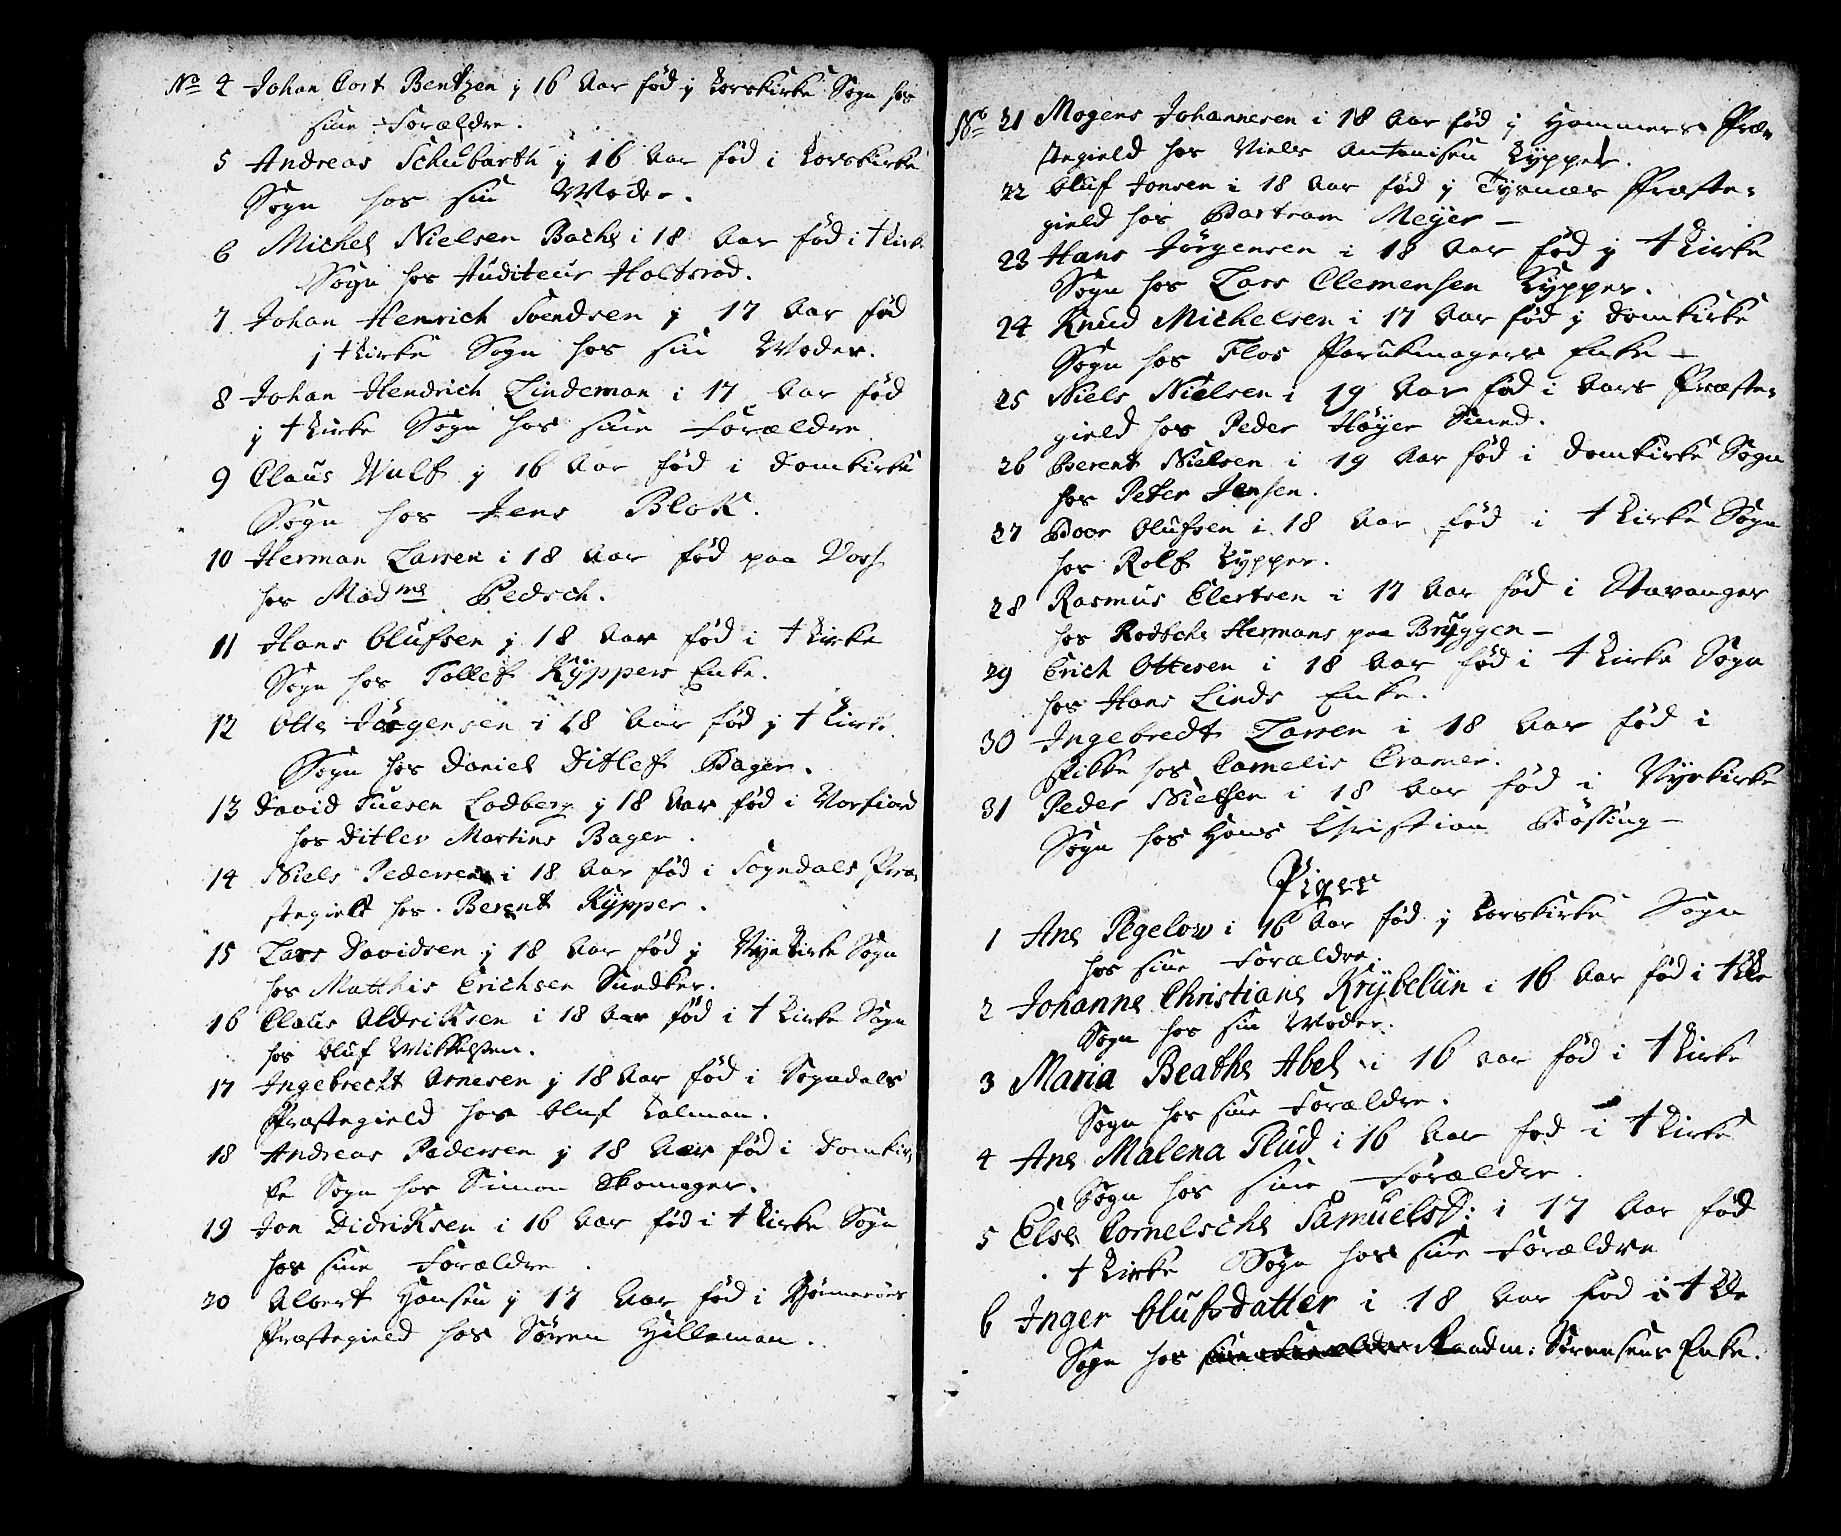 No 4 Johan Cort Bentzen j 16 Aar fød j Korskirke Sogn hos
sine Forældre.
5 Andreas Schubarth j 16 Aar fød i Korskirke
Sogn hos sin Moder.
6 Michel Nielsen Bache i 18 Aar fød i † Kirk
Sogn hos Auditeur Holtsrod.
7 Johan Henrich Svendsen j 17 Aar fød
j † Kirke Sogn hos sin Moder.
8 Johan Hendrich Lindeman i 17 Aar fød
j † Kirke Sogn hos sine Forældre
9 Claus Wulf j 16 Aar fød i Domkirke
Sogn hos Jens Blok.
10 Herman Larsen i 18 Aar fød paa Voss
hos Madme Pedsch.
11 Hans Olufsen j 18 Aar fød i † Kirke
Sogn hos Tollef Kyppers Enke.
12 Otte Jørgensen i 18 Aar fød j † Kirke
Sogn hos Daniel Ditlef Bager.
13 David Lodberg j 18 Aar fød i Norfiord
hos Ditlev Martins Bager.
14 Niels Pedersen i 18 Aar fød i Sogndals Præ-
stegield hos Berent Kypper.
15 Lars Davidsen j 18 Aar fød j Nyekirke Sogn
hos Matthis Erichsen Snedker.
16 Claus Aldriksen i 18 Aar fød i † Kirke Sogn
hos Oluf Mikkelsen.
17 Ingebrecht Arnesen j 18 Aar fød i Sogndals
Præstegield hos Oluf Kalman.
18 Andreas Pedersen j 18 Aar fød i Domkir-
ke Sogn hos Simon Skomager.
19 Jon Didriksen i 16 Aar fød i † Kirke Sogn
hos sine Forældre.
20 Albert Hansen j 17 Aar fød i
Præstegield hos Søren Hilleman.
No 21 Mogens Johannesen i 18 Aar fød j Hammers Præ-
stegield hos Niels Antonisen Kypper.
22 Oluf Jonsen i 18 Aar fød j Tysnæs Præste-
gield hos Bartram Meyer –
23 Hans Jørgensen i 18 Aar fød j † Kirke
Sogn hos Lars Clemensen Kypper.
24 Knud Michelsen i 17 Aar fød j Domkirke
Sogn hos Flos Parukmagers Enke –
25 Niels Nielsen i 19 Aar fød i Aars Præste-
gield hos Peder Høyer Smed.
26 Berent Nielsen i 19 Aar fød i Domkirke Sogn
hos Peter Jensen.
27 Boor Olufsen i 18 Aar fød i † Kirke Sogn
hos Rolf Kypper.
28 Rasmus Elertsen i 17 Aar fød i Stavanger
hos Hermans paa Bryggen –
29 Erich Ottesen i 18 Aar fød i † Kirke Sogn
hos Hans Linds Enke.
30 Ingebredt Larsen i 18 Aar fød i
hos Cornelis Cramer.
31 Peder Nielsen i 18 Aar fød i Nyekirke
Sogn hos Hans Christian Bøssing –
Piger
1 Ane Pegelow i 16 Aar fød j Korskirke Sogn
hos sine Forældre.
2 Johanne Christiane Krybelün i 16 Aar fød i † Kke
Sogn hos sin Moder.
3 Maria Beathe Abel i 16 Aar fød i † Kirke
Sogn hos sine Forældre.
4 Ane Malena Flud i 16 Aar fød i † Kirke
Sogn hos sine Forældre.
5 Else Cornelsche Samuelsd: i 17 Aar fød
† Kirke Sogn hos sine Forældre
6 Inger Olufsdatter i 18 Aar fød i † Kke
Sogn hos sine Forældre Raadm: Sørensens Enke.